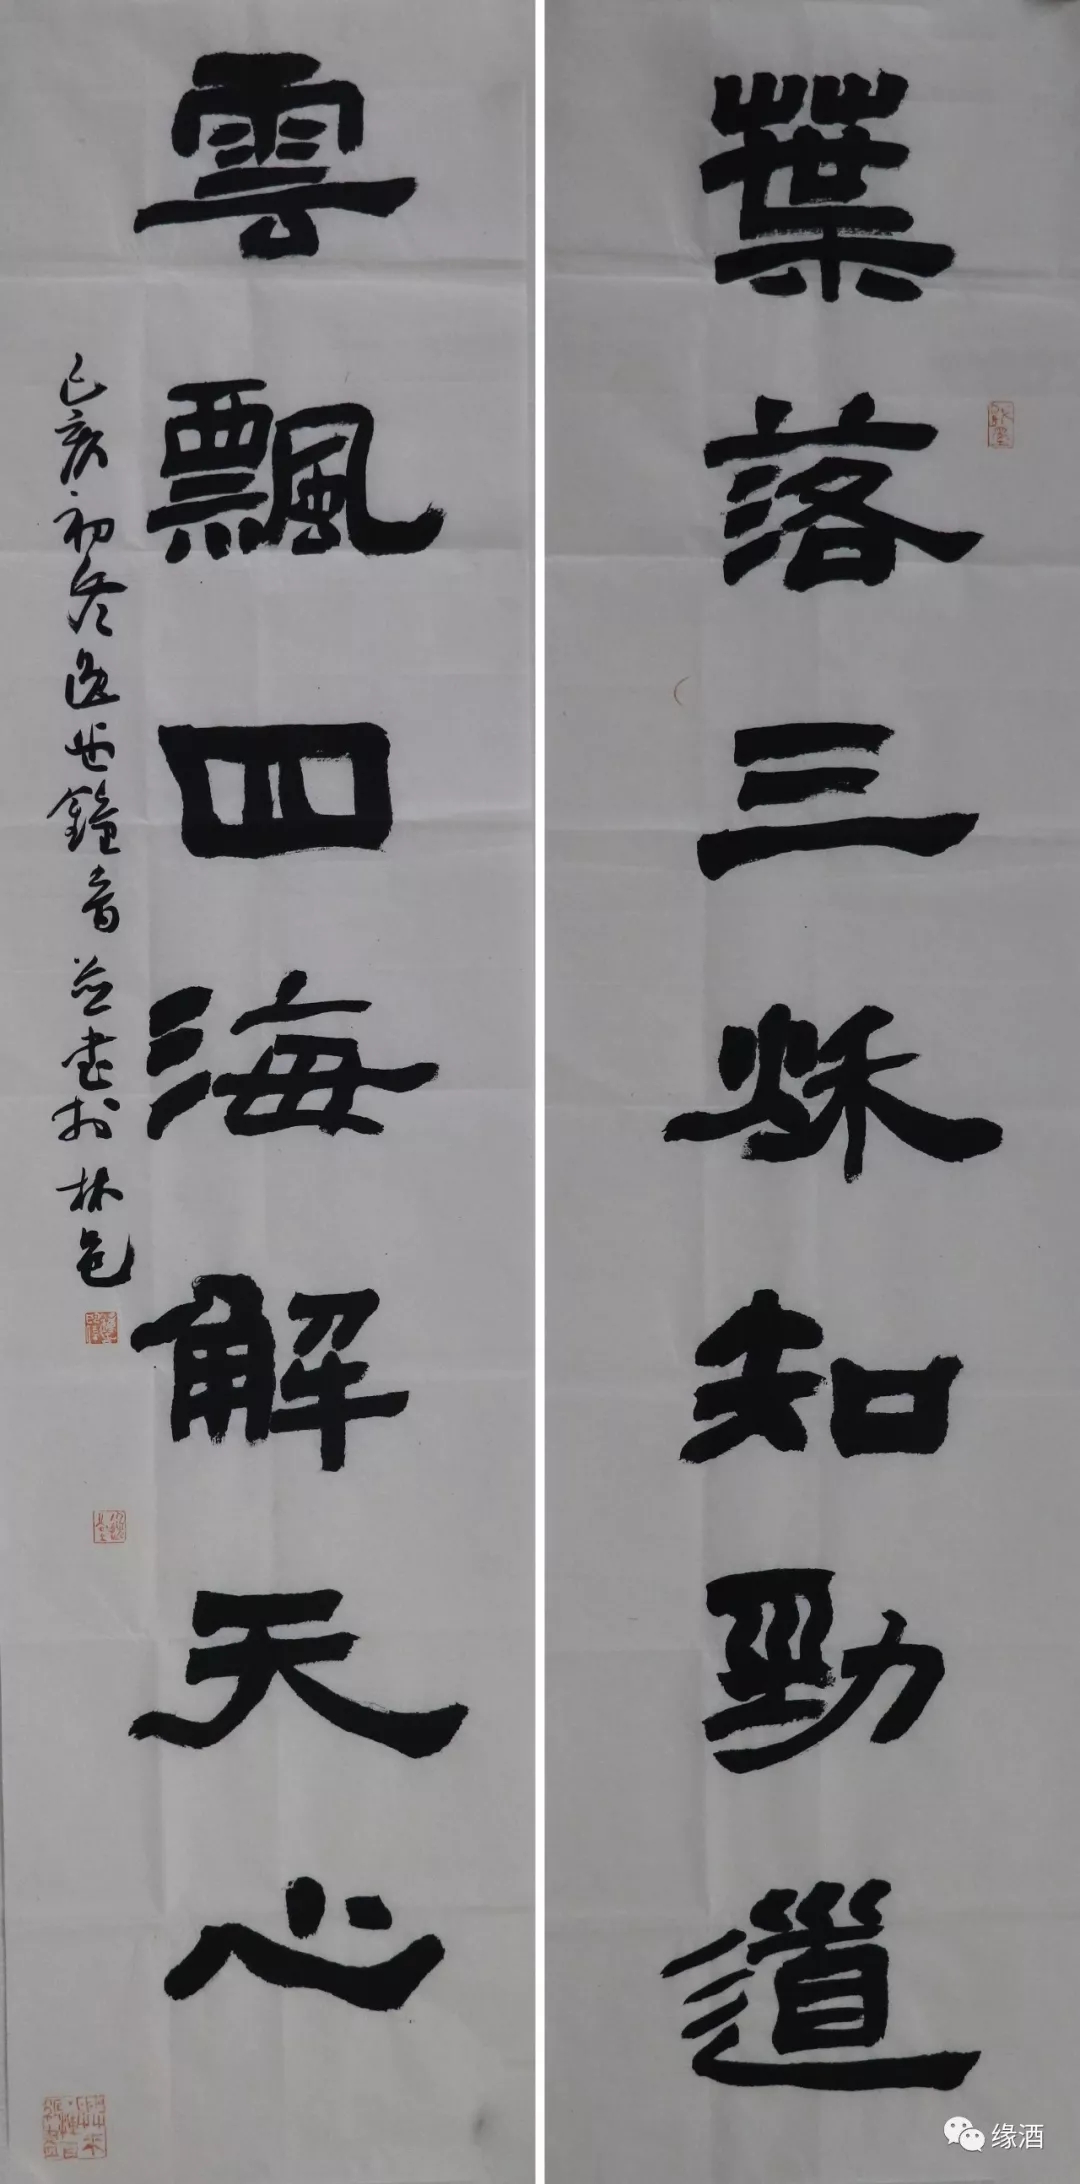 葉落三秌知勁道
雲飄四海解天心
己亥初冬逸世鐘音並書於林邑
缘酒